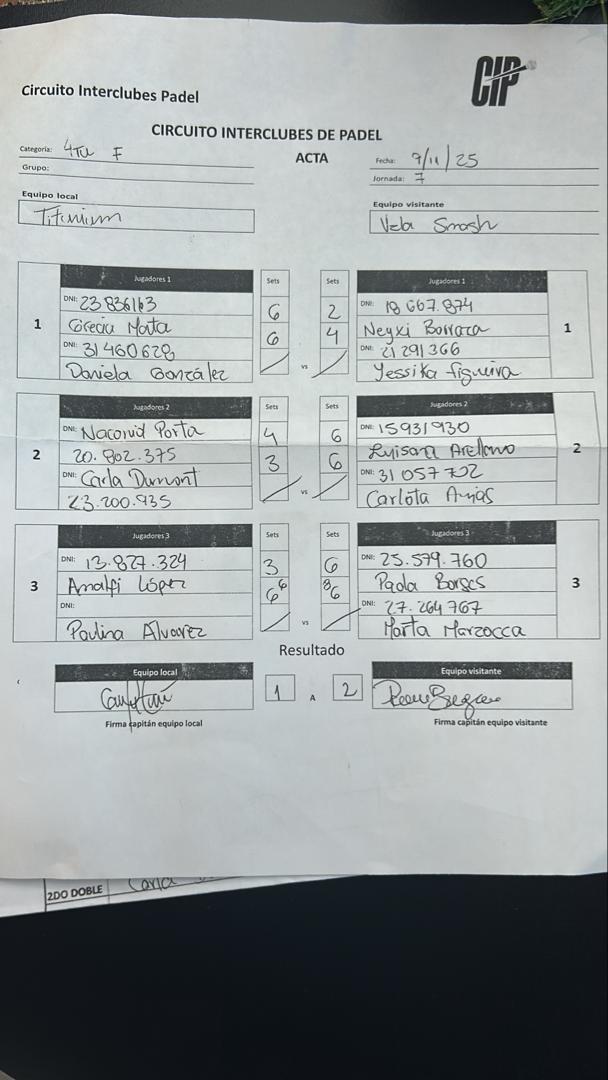 Circuito Interclubes Padel
CIP
CIRCUITO INTERCLUBES DE PADEL
ACTA
Categoria: 4TA F
Grupo:
Fecha: 9/11/25
Jornada: 7
Equipo local
Titinium
Equipo visitante
Vela Smash
Jugadores 1 Sets Sets Jugadores 1
1 DNI: 23836163 6 2 DNI: 18 667.874 1
Grecia Mata 6 4 Neyxi Barraza
DNI: 31460628 DNI: 21 291 366
Daniela González vs Yessika figueira
Jugadores 2 Sets Sets Jugadores 2
2 DNI: Nacorid Porta 4 6 DNI: 15931930 2
20.802.375 3 6 Luisana Arellano
DNI: Carla Dumont DNI: 31 057 702
23.200.935 vs Carlota Arias
Jugadores 3 Sets Sets Jugadores 3
3 DNI: 13.827.324 3 6 DNI: 25.579.760 3
Amalfi López 6 6 8 6 Paola Borges
DNI: DNI: 27.264767
Paulina Alvarez vs Marta Marzocca
Resultado
Equipo local 1 A 2 Equipo visitante
Firma capitán equipo local
Firma capitán equipo visitante
2DO DOBLE Carla